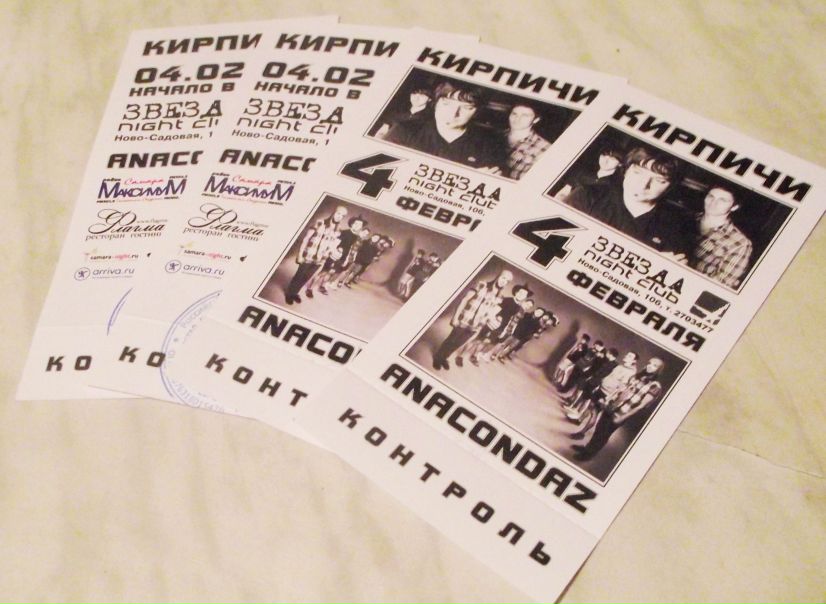 КИРПИ
04.02
НАЧАЛО В
ЗВЕЗДА
night clu
Ново-Садовая, 1
ANACO
Самара
МаксимуМ
Флагма
ресторан гостини
samara-night.ru
arriva.ru
КО
КИРПИ
04.02
НАЧАЛО В
ЗВЕЗДА
night clu
Ново-Садовая, 1
ANACO
Самара
МаксимуМ
www.flagma
Флагма
ресторан гостини
samara-night.ru
arriva.ru
КО
КИРПИЧИ
4
ЗВЕЗДА
night club
Ново-Садовая, 106,
ФЕВРА
ANACOND
КОНТ
КИРПИЧИ
4
ЗВЕЗДА
night club
Ново-Садовая, 106, т. 2703477
ФЕВРАЛЯ
ANACONDAZ
КОНТРОЛЬ